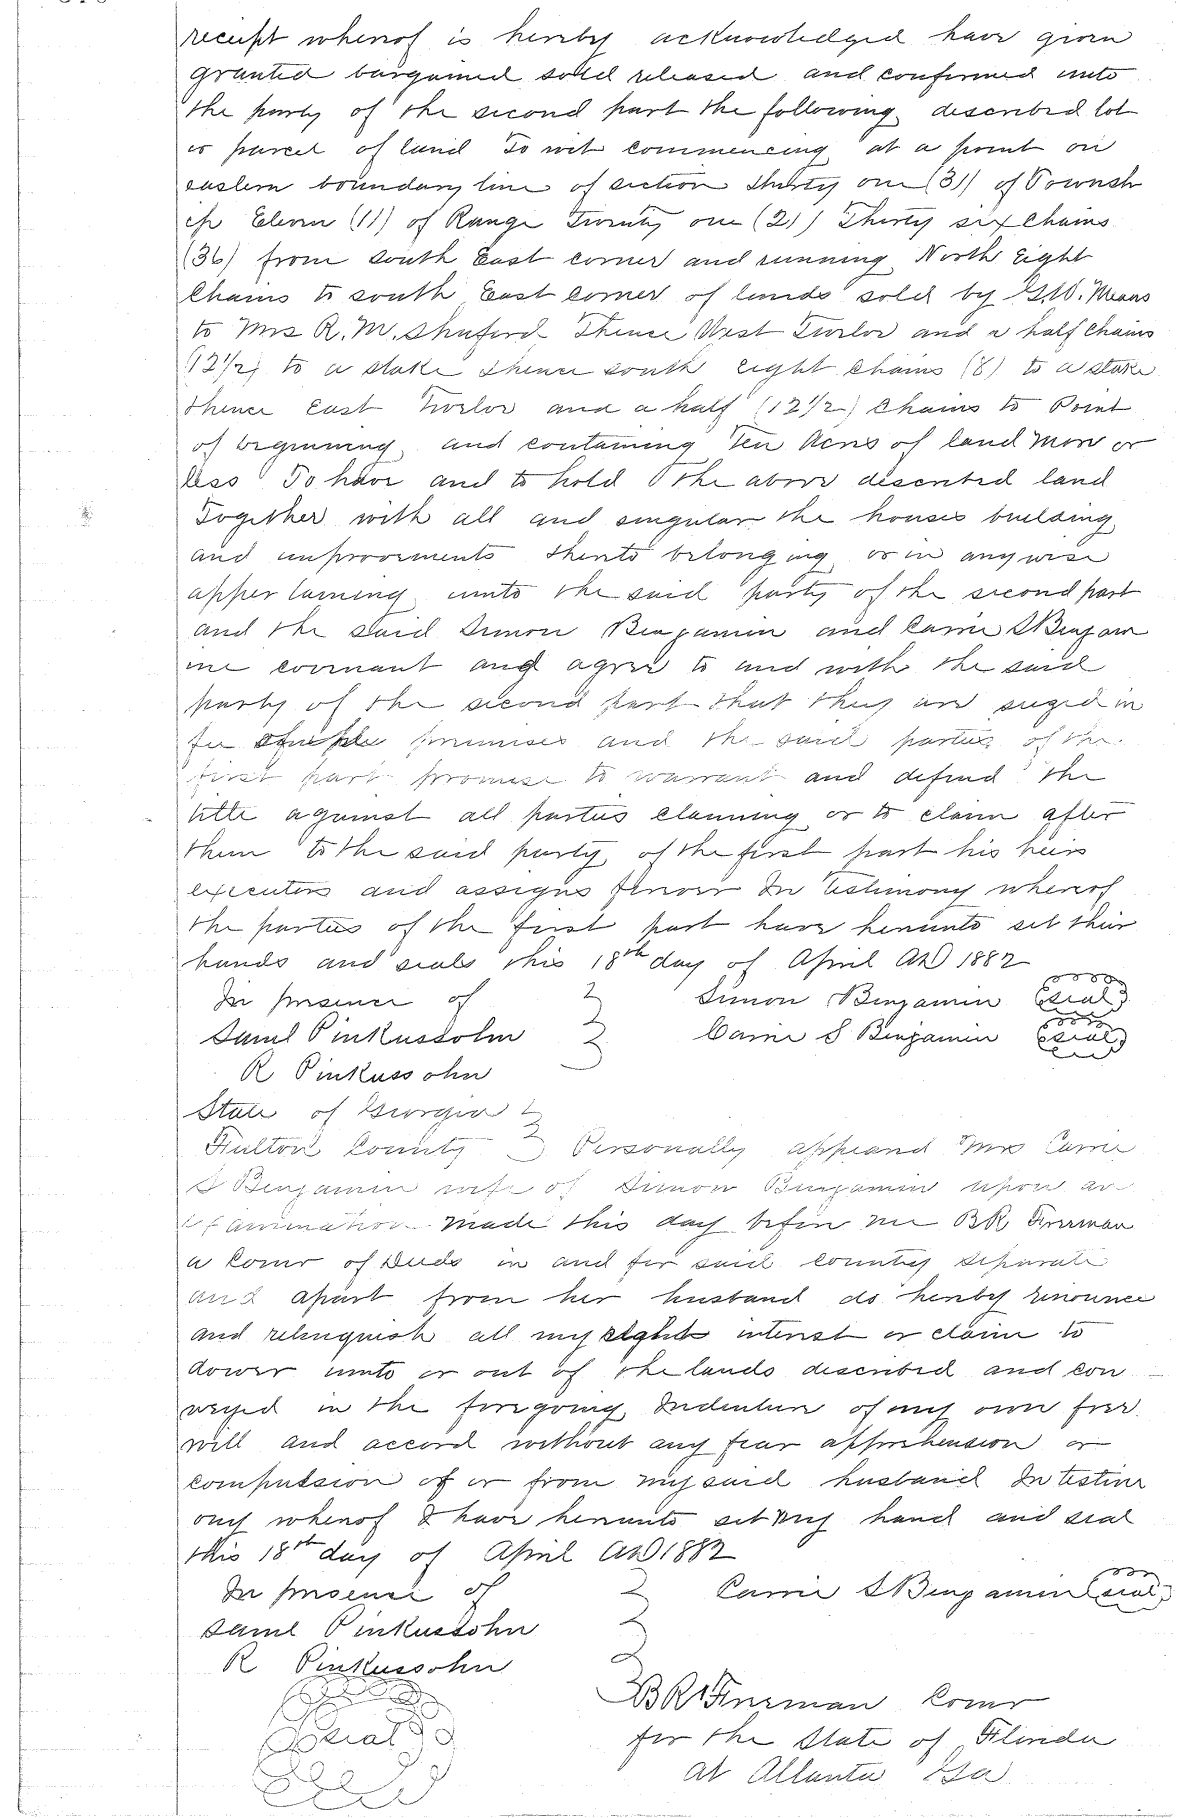 receipt whereof is hereby acknowledged have given
granted bargained sold released and confirmed unto
the party of the second part the following described lot
or parcel of land To wit commencing at a point on
eastern boundary line of section thirty one (31) of Townsh
ip Eleven (11) of Range Twenty one (21) Thirty six Chains
(36) from south East corner and running North Eight
Chains to south East corner of lands sold by G.W. Means
to Mrs R. M. Shuford Thence West Twelve and a half Chains
(12 1/2) to a stake thence south eight chains (8) to a stake
thence East Twelve and a half (12 1/2) Chains to Point
of beginning, and containing Ten Acres of land more or
less To have and to hold the above described land
Together with all and singular the houses building
and improvements thereto belonging or in any wise
appertaining unto the said party of the second part
and the said Simon Benjamin and Carrie S Benjam
ine covenant and agree to and with the said
party of the second part that they are seized in
fee simple premises and the said parties of the
first part promise to warrant and defend the
title against all parties claiming or to claim after
them to the said party of the first part his heirs
executors and assigns forever In testimony whereof
the parties of the first part have hereunto set their
hands and seals this 18th day of April AD 1882
In presence of Simon Benjamin (seal)
Saml Pinkussohn Carrie S Benjamin (seal)
R Pinkussohn
State of Georgia
Fulton County Personally appeared Mrs Carrie
S Benjamin wife of Simon Benjamin upon an
examination made this day before me BR Freeman
a Comr of Deeds in and for said county separate
and apart from her husband do hereby renounce
and relinquish all my right interest or claim to
dower unto or out of the lands described and con
veyed in the foregoing Indenture of my own free
will and accord without any fear apprehension or
compulsion of or from my said husband In testim
ony whereof I have hereunto set my hand and seal
this 18th day of April AD 1882
In presence of Carrie S Benjamin (seal)
Saml Pinkussohn
R Pinkussohn
BR Freeman Comr
seal for the State of Florida
at Atlanta Ga